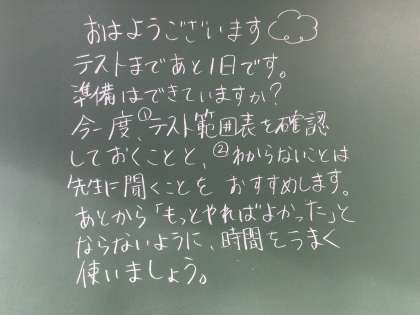 おはようございます
テストまであと1日です。
準備はできていますか?
今一度、①テスト範囲表を確認
しておくことと、②わからないことは
先生に聞くことを おすすめします。
あとから「もっとやればよかった」と
ならないように、時間をうまく
使いましょう。